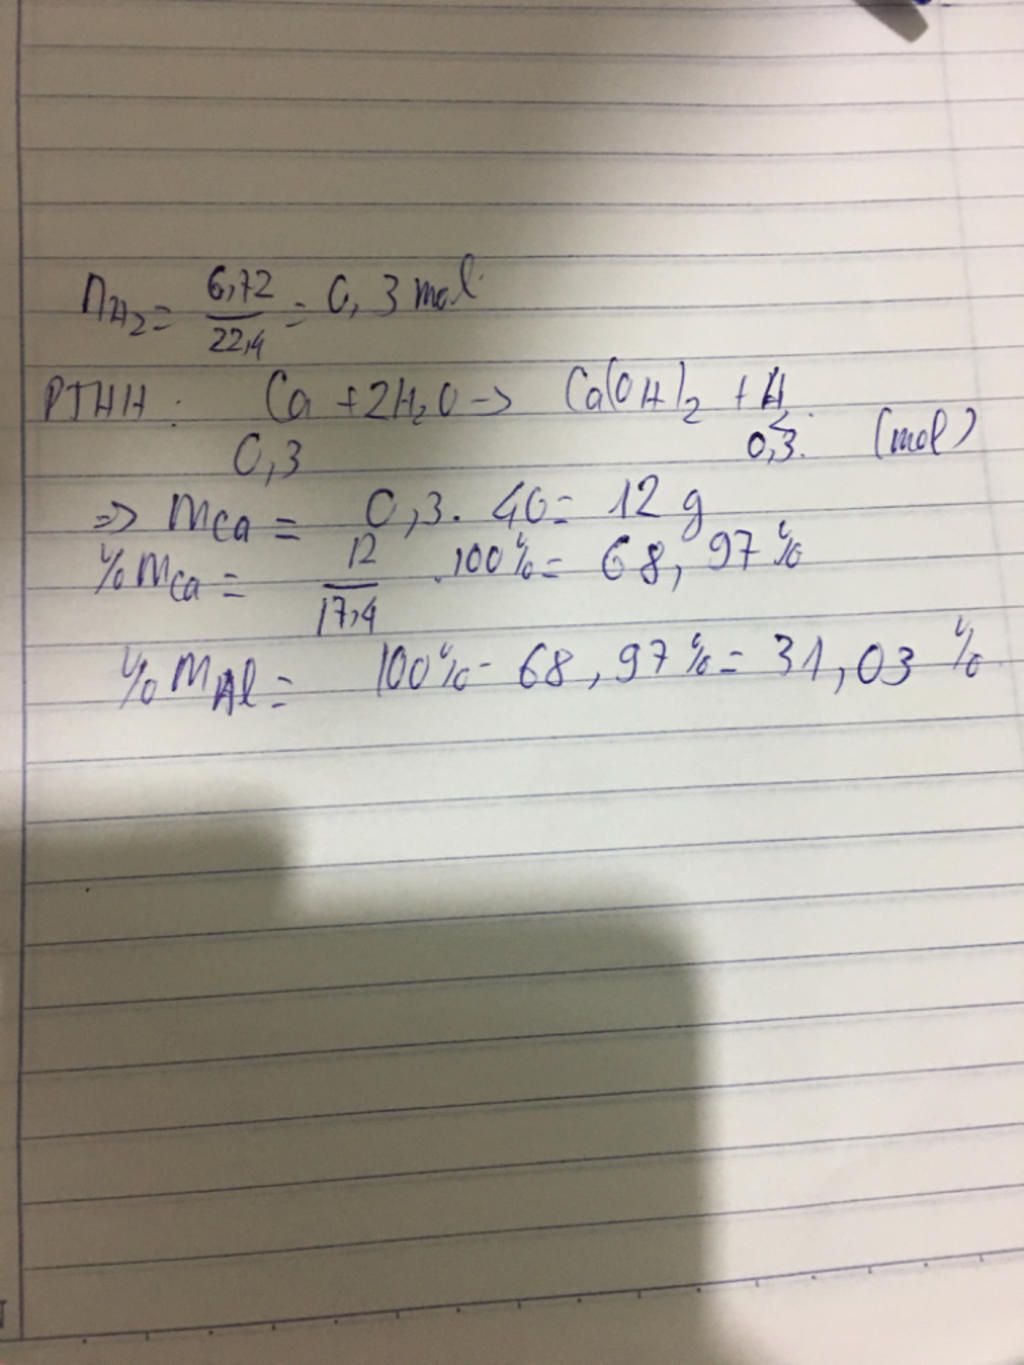 nH₂ = 6,72/22,4 = 0,3 mol
PTHH: Ca + 2H₂O -> Ca(OH)₂ + H₂
0,3 0,3. (mol)
=> mCa = 0,3. 40 = 12 g
%mCa = 12/17,4 .100% = 68,97%
%mAl = 100% - 68,97% = 31,03%